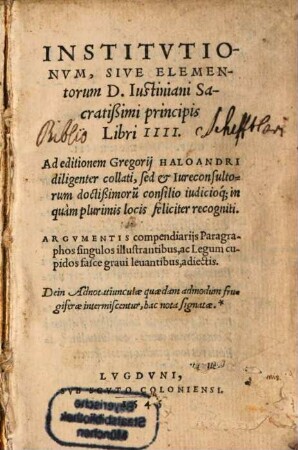 INSTITVTIO-
NVM, SIVE ELEMEN-
torum D. Iustiniani Sa-
cratißimi principis
Biblio Libri IIII. Schefftlari
Ad editionem Gregorij HALOANDRI
diligenter collati, sed & Iureconsulto-
rum doctißimorũ consilio iudicioq́; in
quàm plurimis locis feliciter recogniti.
ARGVMENTIS compendiarijs Paragra-
phos singulos illustrantibus, ac Legum cu-
pidos fasce graui leuantibus, adiectis.
Dein Adnotatiunculæ quædam admodum fru-
giferæ intermiscentur, hac nota signatæ. *
LVGDVNI,
SVB SCVTO COLONIENSI.
Bayerische
Staatsbibliothek
München